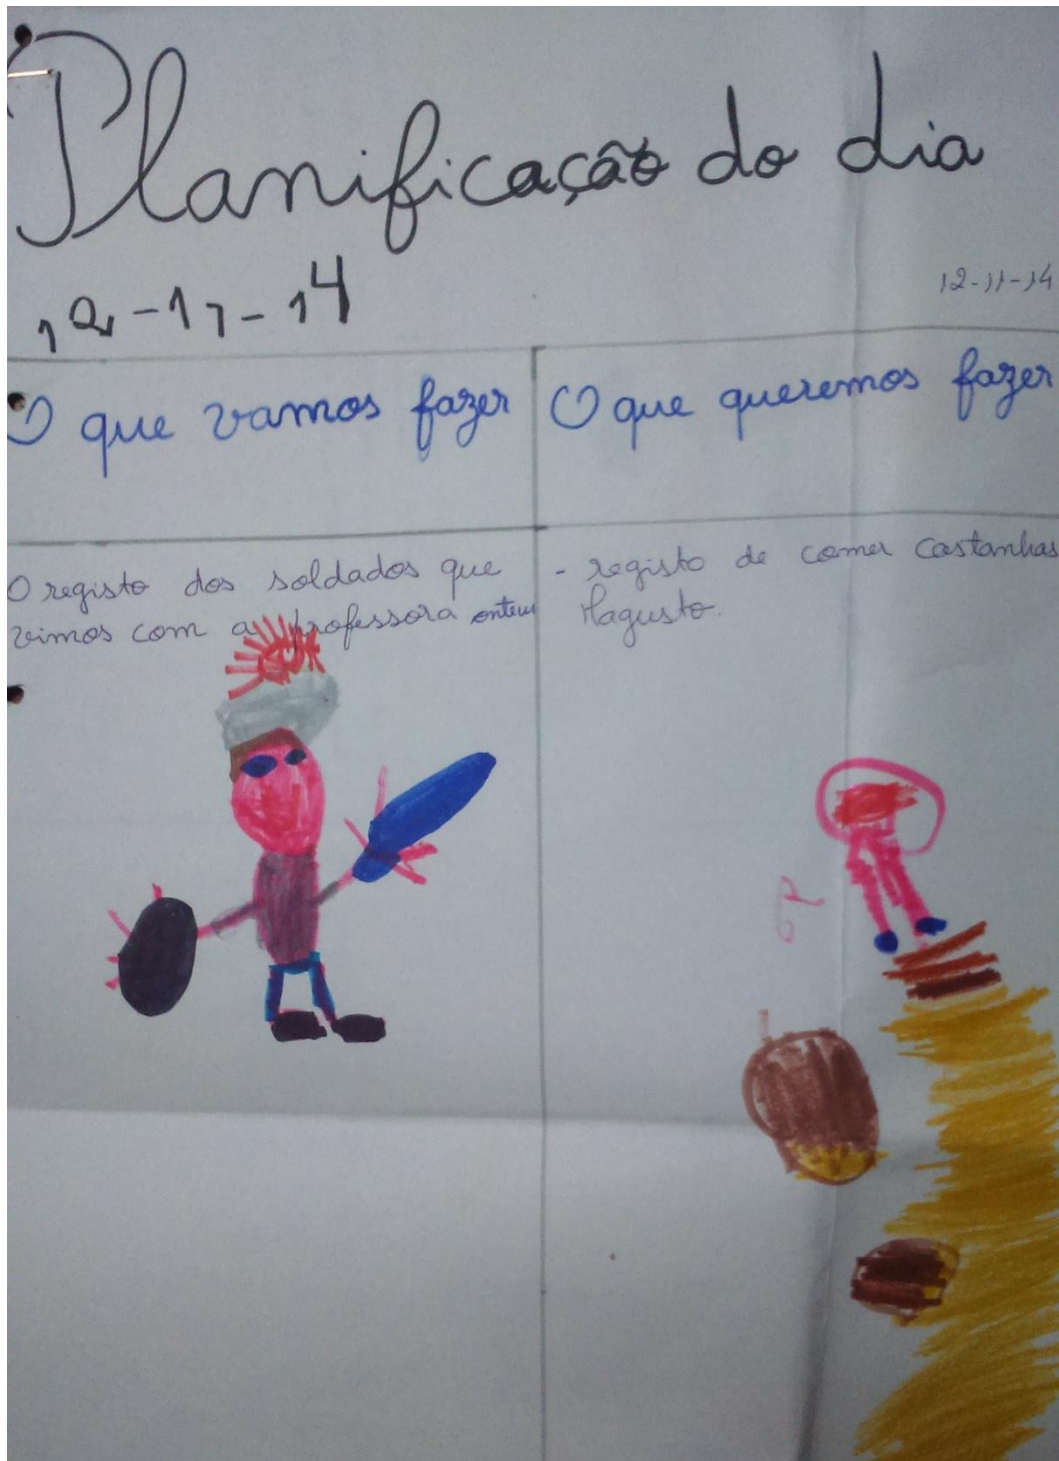 Planificação do dia
12-11-14
12-11-14
O que vamos fazer
O que queremos fazer
O registo dos soldados que
vimos com a professora ontem
- registo de comer castanhas
Magusto.